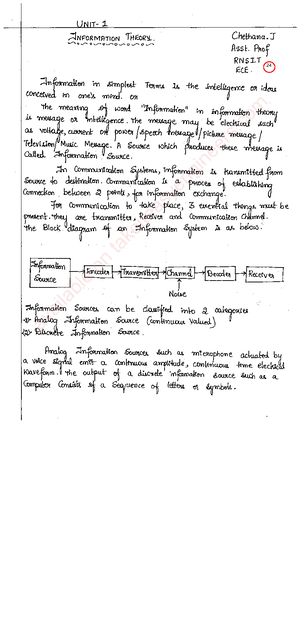 UNIT-1
INFORMATION THEORY.
Chethana.J
Asst. Prof
RNSIT
ECE.
Information in simplest Terms is the intelligence or ideas
conceived in one's mind. or
The meaning of word "Information" in information theory
is message or intelligence. The message may be electrical such
as voltage, current or power/speech message/picture message/
Television/Music Message. A Source which produces these message is
Called Information Source.
In Communication Systems, information is transmitted from
Source to destination. Communication is a process of establishing
Connection between 2 points, for information exchange.
For Communication to take place, 3 essential things must be
present. they are transmitter, Receiver and Communication Channel.
the Block diagram of an Information System is as below.
Information
Source
Encoder
Transmitter
Channel
Decoder
Receiver
Noise
Information Sources can be classified into 2 categories
Analog Information Source (continuous Valued)
Discrete Information Source.
Analog Information Sources such as microphone actuated by
a voice signal emit a continuous amplitude, continuous time electrical
waveform. The output of a discrete information source such as a
Computer Consists of a Sequence of letters or symbols.